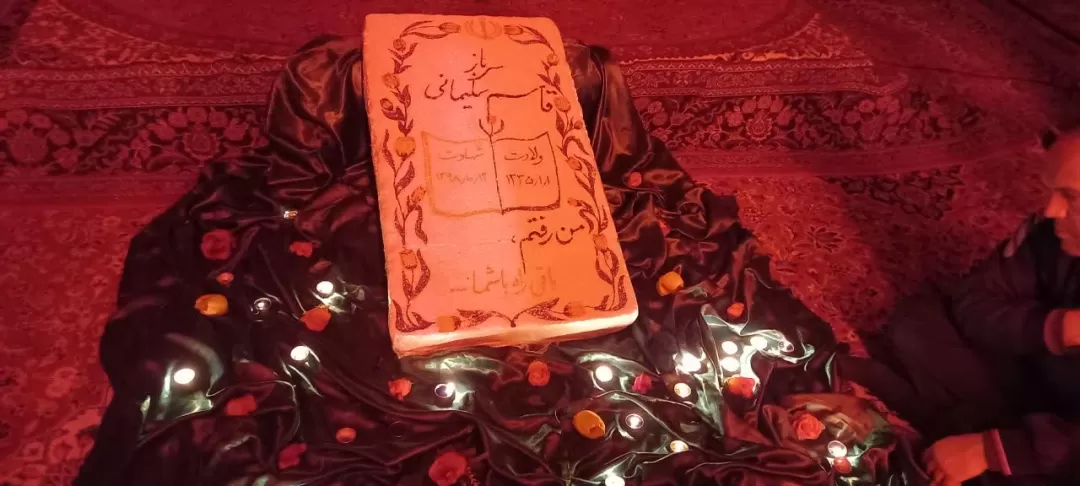 سرباز
قاسم سلیمانی
ولادت
۱۳۳۵/۱/۱
شهادت
۱۳۹۸/۱۰/۱۳
من رفتم،
باقی راه با شما...